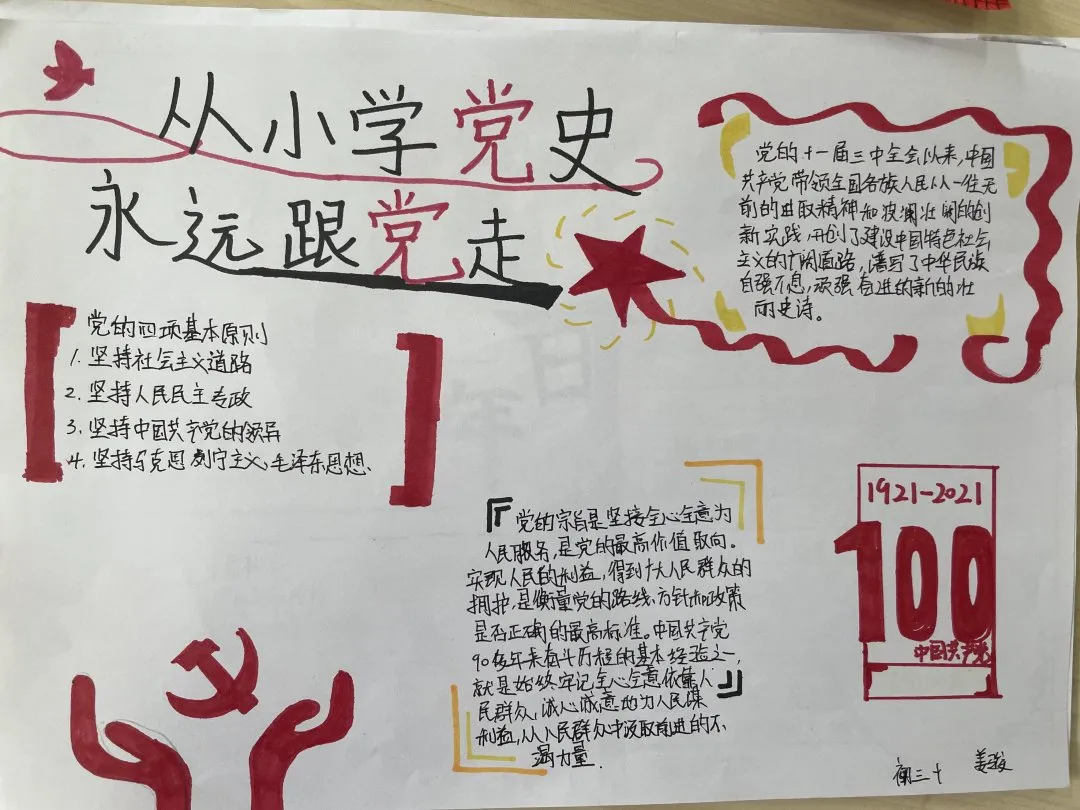 从小学党史
永远跟党走
党的十一届三中全会以来,中国
共产党带领全国各族人民以一往无
前的进取精神和波澜壮阔的创
新实践,开创了建设中国特色社会
主义的广阔道路,谱写了中华民族
自强不息,顽强奋进的新的壮
丽史诗。
党的四项基本原则
1. 坚持社会主义道路
2. 坚持人民民主专政
3. 坚持中国共产党的领导
4. 坚持马克思列宁主义、毛泽东思想、
『党的宗旨是坚持全心全意为
人民服务,是党的最高价值取向。
实现人民的利益,得到广大人民群众的
拥护,是衡量党的路线、方针和政策
是否正确的最高标准。中国共产党
90多年来奋斗历程的基本经验之一,
就是始终牢记全心全意依靠人
民群众,诚心诚意地为人民谋
利益,从人民群众中汲取前进的不
竭力量.』
1921-2021
100
中国共产党
初三十